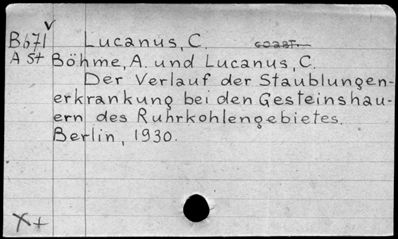 B671 Lucanus, C.
A St Böhme, A. und Lucanus, C.
Der Verlauf der Staublungen-
erkrankung bei den Gesteinshau-
ern des Ruhrkohlengebietes.
Berlin, 1930.
X+